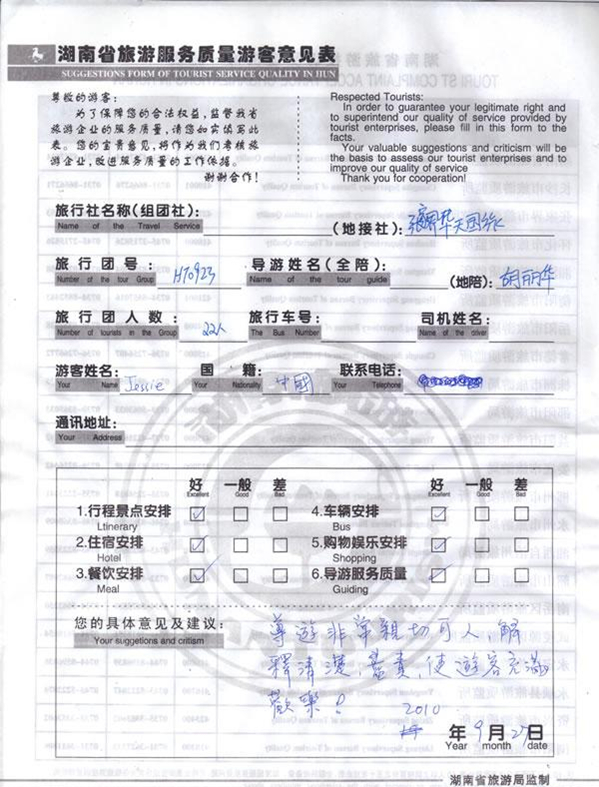 湖南省旅游服务质量游客意见表
SUGGESTIONS FORM OF TOURIST SERVICE QUALITY IN HUN
尊敬的游客：
为了保障您的合法权益，监督我省
旅游企业的服务质量，请您如实填写此
表。您的宝贵意见，将作为我们考核旅
游企业，改进服务质量的工作依据。
谢谢合作！
Respected Tourists:
In order to guarantee your legitimate right and
to superintend our quality of service provided by
tourist enterprises, please fill in this form to the
facts.
Your valuable suggestions and criticism will be
the basis to assess our tourist enterprises and to
improve our quality of service
Thank you for cooperation!
旅行社名称(组团社)：
Name of the Travel Service
(地接社)：
旅行团号：
Name of the tour Group
HT0923
导游姓名(全陪)：
Name of the tour guide
(地陪)：胡丽华
旅行团人数：
Number of tourists in the Group
22人
旅行车号：
The Bus Number
司机姓名：
Name of the driver
游客姓名：
Your Name
Jessie
国籍：
Your Nationality
中國
联系电话：
Your Telephone
通讯地址：
Your Address
好 一般 差 好 一般 差
Excellent Good Bad Excellent Good Bad
1.行程景点安排 4.车辆安排
Ltinerary Bus
2.住宿安排 5.购物娱乐安排
Hotel Shopping
3.餐饮安排 6.导游服务质量
Meal Guiding
您的具体意见及建议：
Your suggetions and critism
導遊非常親切可人，解
釋清楚，負責，使遊客充滿
歡樂！
2010
年 9 月 27 日
Year month date
湖南省旅游局监制